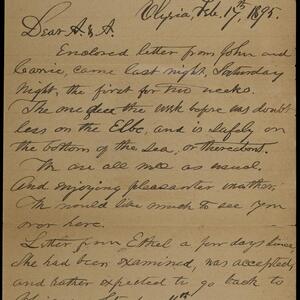 Olysia, Feb. 17th, 1895.
Dear A. & A.
Enclosed letter from John and
Carrie, came last night, Saturday
night, the first for two weeks.
The one due the week before was doubt
less on the Elbe, and is safely on
the bottom of the sea, or thereabouts.
We are all well as usual.
And enjoying pleasanter weather.
We would like much to see you
over here.
Letter from Ethel a few days since,
She had been examined, was accepted,
and rather expected to go back to